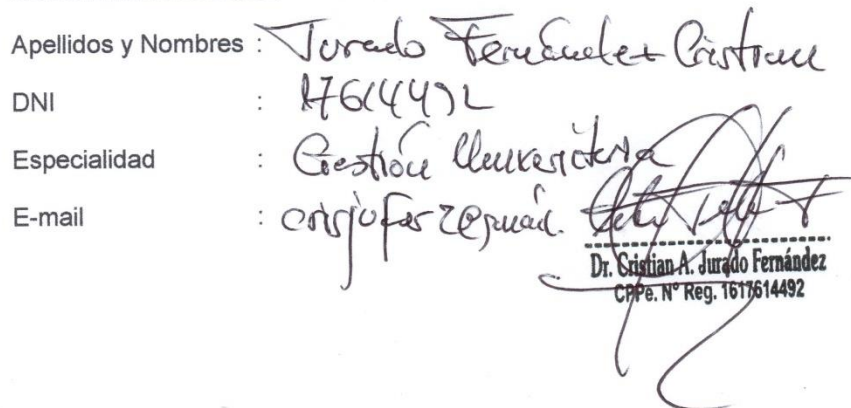 Apellidos y Nombres : Jurado Fernández Cristian
DNI : 17614492
Especialidad : Gestión Universitaria
E-mail :
Dr. Cristian A. Jurado Fernández
CPPe. N° Reg. 1617614492